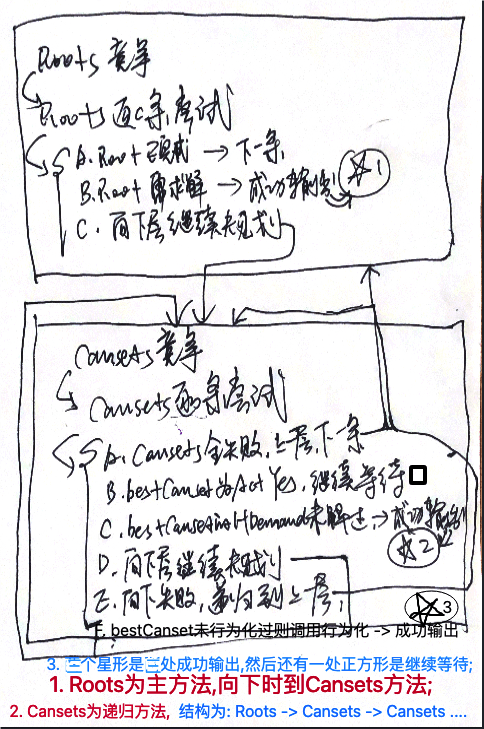 Roots竞争
Roots逐条尝试
A. Root已疲 → 下一条
B. Root需求解 → 成功输出 1
C. 向下层继续规划
Cansets竞争
Cansets逐条尝试
A. Cansets全失败,上层,下一条
B. bestCanset为ActYes,继续等待
C. bestCanset的HDemand未解过, → 成功输出 2
D. 向下层继续规划
E. 向下失败,递归到上一层,
F. bestCanset未行为化过则调用行为化 -> 成功输出 3
3. 三个星形是三处成功输出,然后还有一处正方形是继续等待;
1. Roots为主方法,向下时到Cansets方法;
2. Cansets为递归方法, 结构为: Roots -> Cansets -> Cansets ....